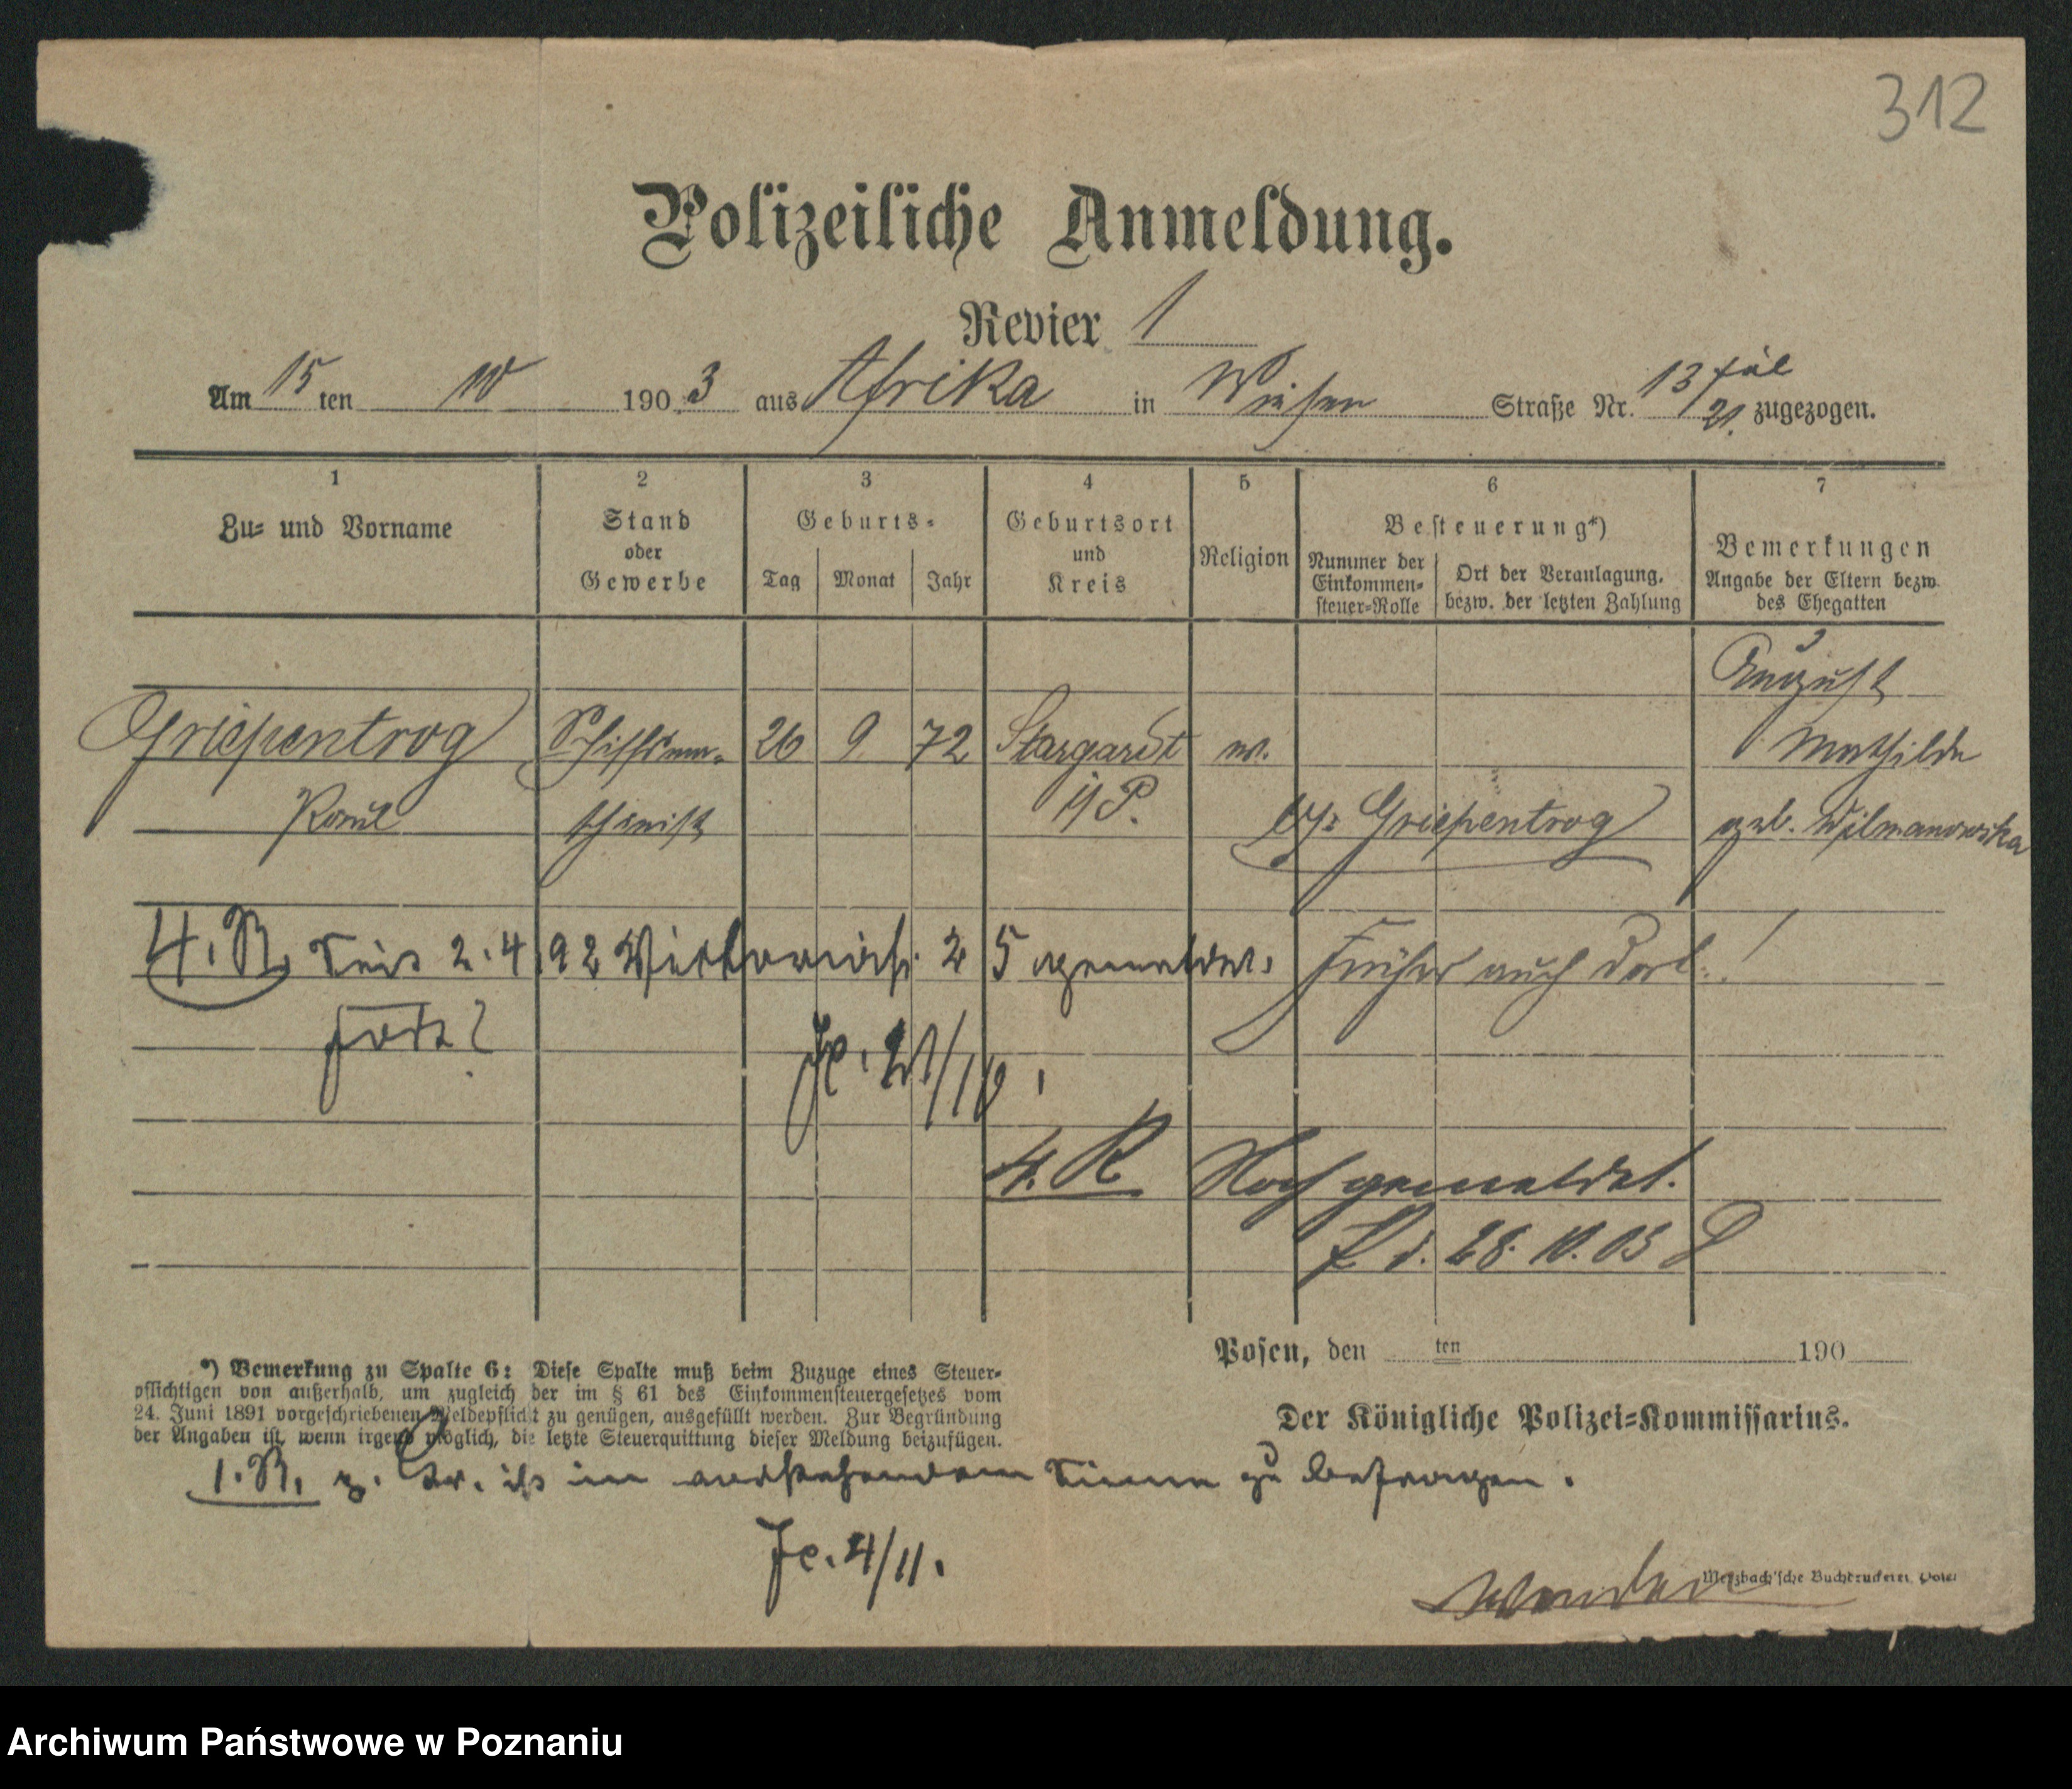 312
Polizeiliche Anmeldung.
Revier 1
Am 15 ten 10 1903 aus Afrika in Wiesen Straße Nr. 13 zugezogen.
1 2 3 4 5 6 7
Zu- und Vorname
Stand oder Gewerbe
Geburts-
Tag Monat Jahr
Geburtsort und Kreis
Religion
Besteuerung*)
Nummer der Einkommen-steuer-Rolle
Ort der Veranlagung, bezw. der letzten Zahlung
Bemerkungen
Angabe der Eltern bezw. des Ehegatten
August
Griepentrog Schiffsma- 26 9 72 Stargardt ev. Mathilde
Paul chinist i/P. Griepentrog geb. Wilmanowska
4. R. Seit 2.4.92 25 gemeldet. Früher auch dort!
fort?
Je. 21/10.
4. R Noch gemeldet.
P. d. 28.10.03
Posen, den ten 190
*) Bemerkung zu Spalte 6: Diese Spalte muß beim Zuzuge eines Steuer-
pflichtigen von außerhalb, um zugleich der im § 61 des Einkommensteuergesetzes vom
24. Juni 1891 vorgeschriebenen Meldepflicht zu genügen, ausgefüllt werden. Zur Begründung
der Angaben ist, wenn irgend möglich, die letzte Steuerquittung dieser Meldung beizufügen.
Der Königliche Polizei-Kommissarius.
1. R. z. ist im vorstehenden Sinne zu befragen.
Je. 4/11.
Merzbach'sche Buchdruckerei, Posen
Archiwum Państwowe w Poznaniu